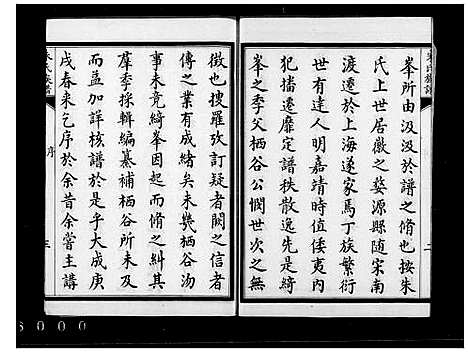 朱氏族譜
二
峯所由汲汲於譜之脩也按朱
氏上世居徽之婺源縣随宋南
渡遷於上海遂家馬丁族繁衍
世有達人明嘉靖時倭夷内
犯播遷靡定譜秩散逸先是綺
峯之季父栖谷公憫世次之無
徴也搜羅攷訂疑者闕之信者
傳之業有成緒矣未幾栖谷沕
事未竟綺峯因起而脩之糾其
羣季採輯編纂補栖谷所未及
而益加詳核譜於是乎大成庚
戌春来乞序於余昔余嘗主講
朱氏族譜
序
三
6000